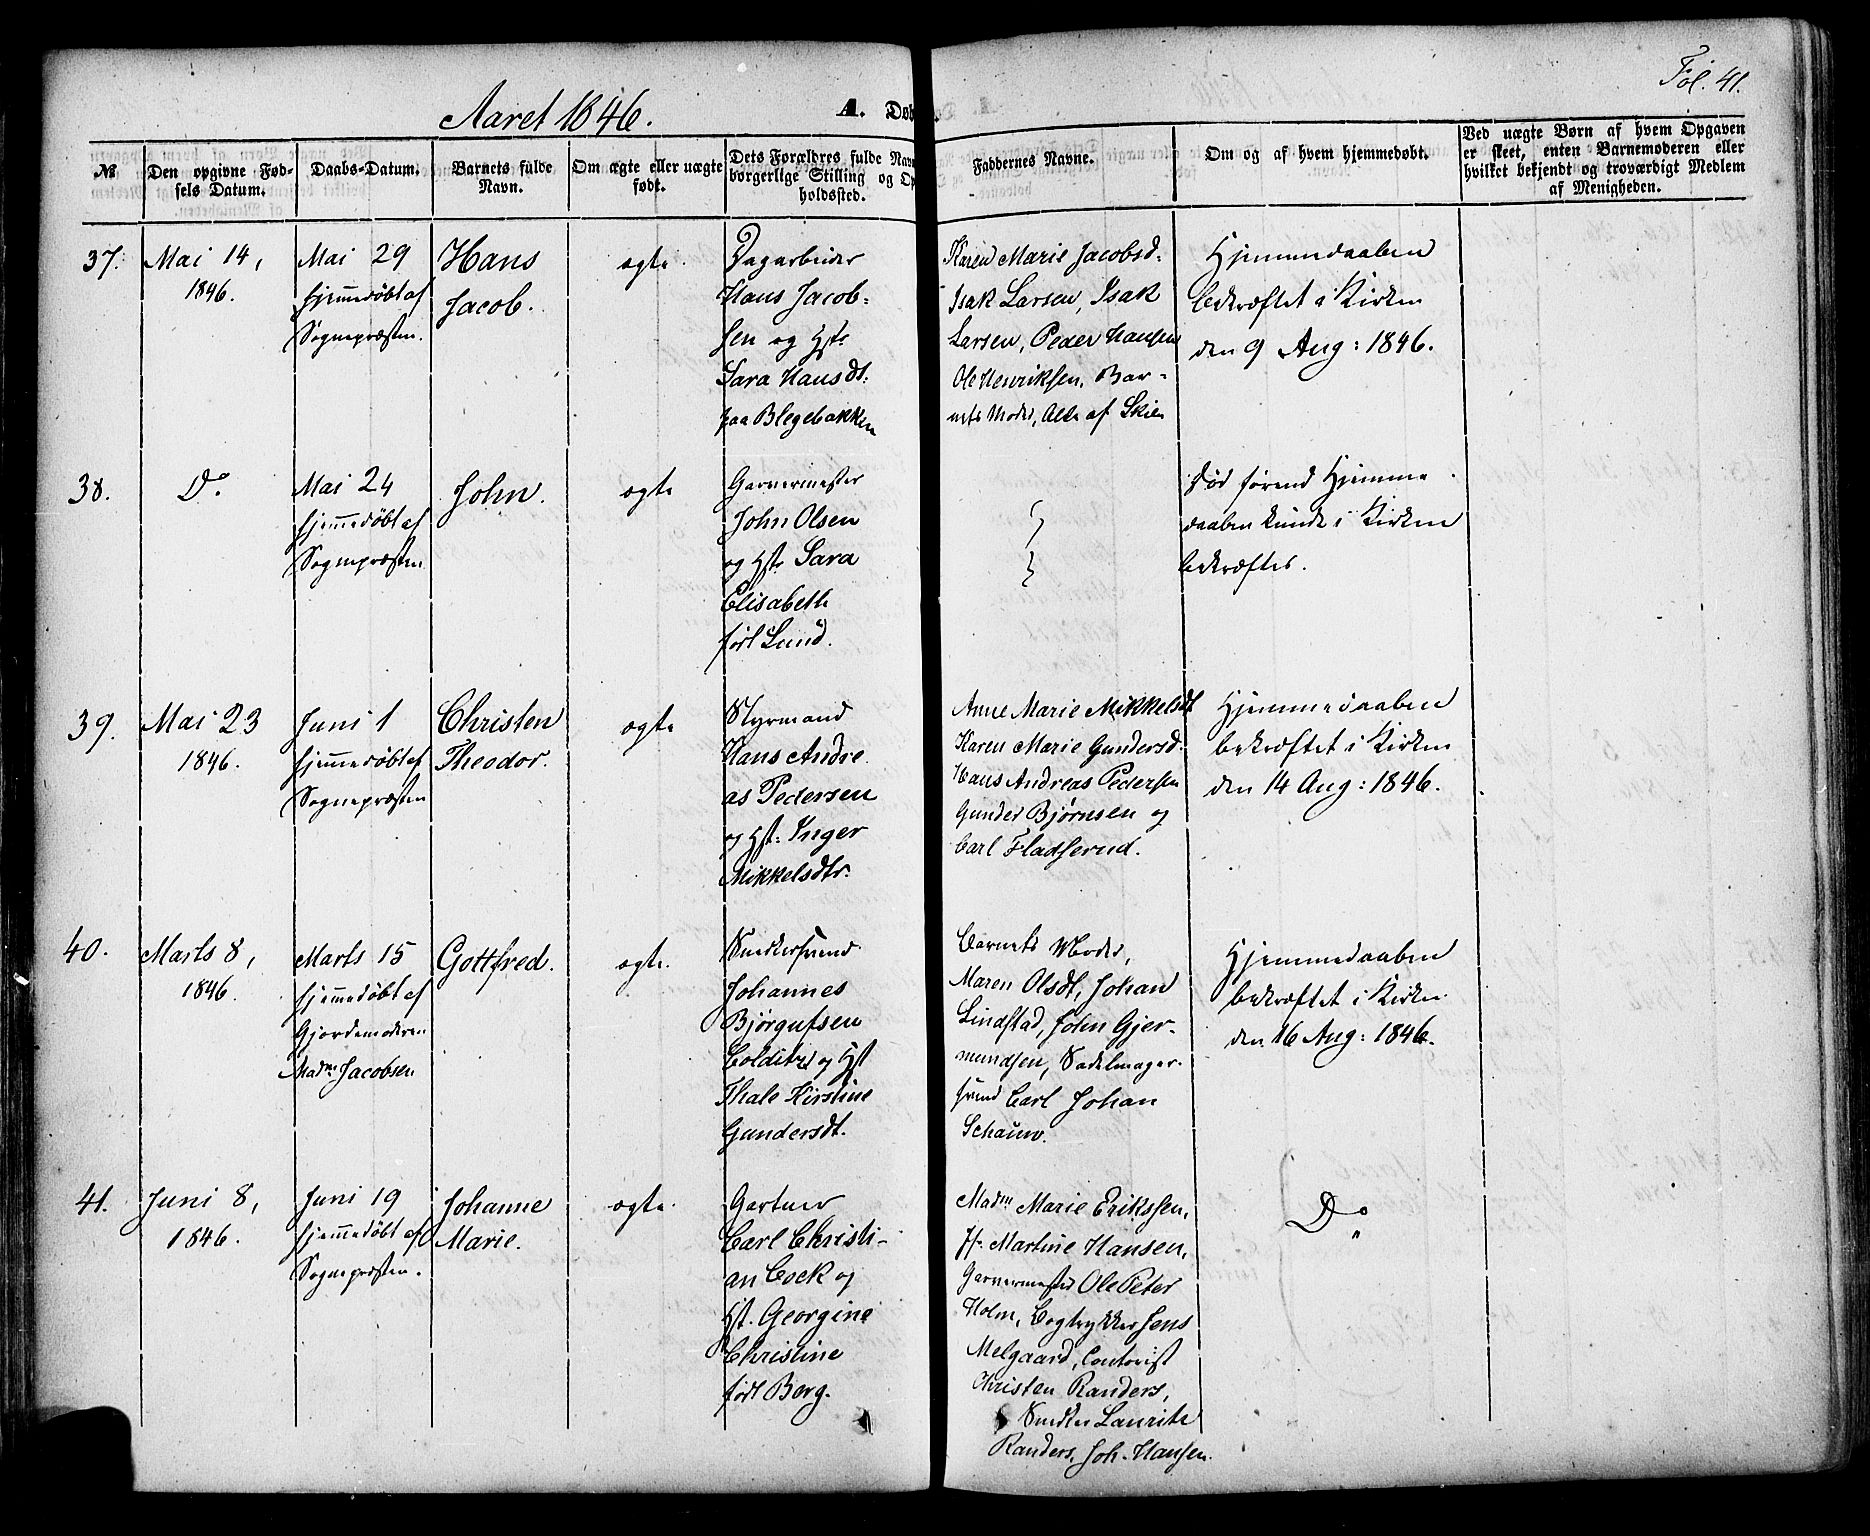 Fol. 41.
Aaret 1846.
A. Døb
№
Den opgivne Fød-
sels Datum.
Daabs-Datum.
Barnets fulde
Navn.
Om ægte eller uægte
født.
Dets Forældres fulde Navn
borgerlige Stilling og Op
holdssted.
Faddernes Navne.
Om og af hvem hjemmedøbt.
Ved uægte Børn af hvem Opgaven
er skeet, enten Barnemoderen eller
hvilket bekjendt og troværdigt Medlem
af Menigheden.
37.
Mai 14,
1846.
Mai 29
hjemmedøbt af
Sognepræsten.
Hans
Jacob.
ægte.
Dagarbeider
Hans Jacob-
sen og Hst:
Sara Hansdt:
paa Blegebakken
Karen Marie Jacobsd.
Isak Larsen, Isak
Larsen, Peder Hansen
Ole Henriksen, Bar-
nets Moder, Alle af Skien
Hjemmedaaben
bekræftet i Kirken
den 9 Aug: 1846.
38.
Do
Mai 24
hjemmedøbt af
Sognepræsten
John.
ægte
Garvermester
John Olsen
og Hst: Sara
Elisabeth
født Lund.
Død førend Hjemme
daaben kunde i Kirken
bekræftes.
39.
Mai 23
1846.
Juni 1
hjemmedøbt af
Sognepræsten
Christen
Theodor.
ægte
Styrmand
Hans Andre
as Pedersen
og Hst: Inger
Mikkelsdtr.
Anne Marie Mikkelsdt
Karen Marie Gundersd.
Hans Andreas Pedersen
Gunder Bjørnsen og
Carl Fladserud.
Hjemmedaaben
bekræftet i Kirken
den 14 Aug: 1846.
40.
Marts 8,
1846.
Marts 15
hjemmedøbt af
Gjordemoderen
Madm Jacobsen
Gottfred.
ægte.
Snedkersvend
Johannes
Bjørgufsen
Colditz og Hst
Thale Kirstine
Gundersdt.
Barnets Moder,
Maren Olsdt, Johan
Lindstad, John Gjer-
mundsen, Sadelmager-
svend Carl Johan
Schauw.
Hjemmedaaben
bekræftet i Kirken
den 16 Aug: 1846.
41.
Juni 8,
1846.
Juni 19
hjemmedøbt af
Sognepræsten.
Johanne
Marie.
ægte.
Gartner
Carl Christi-
an Cock og
Hst. Georgine
Christine
født Borg.
Madm Marie Erikssen,
Jf. Martine Hansen,
Garvermester Ole Peter
Holm, Bogtrykker Jens
Melgaard, Contorist
Christen Randers,
Snedker Lauritz
Randers, Joh. Hansen.
Do